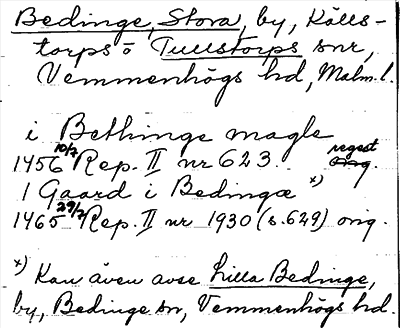 Bedinge, Stora, by, Källs-
torps o Tullstorps snr,
Vemmenhögs hd, Malm. l.
i Bethinge magle
1456 10/7 Rep. II nr 623. regest orig.
1 Gaard i Bedingæ x)
1465 29/7 Rep. II nr 1930 (s. 629) orig.
x) Kan även avse Lilla Bedinge,
by, Bedinge sn, Vemmenhögs hd.